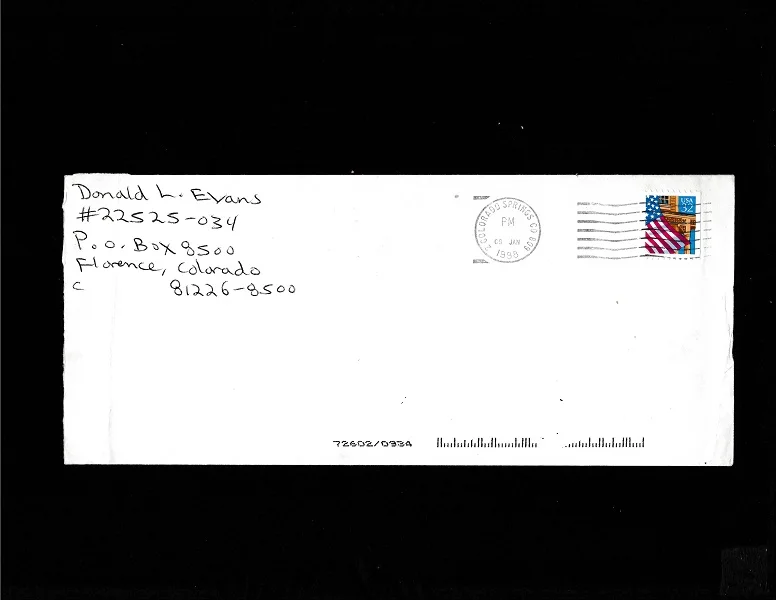 Donald L. Evans
#22525-034
P.O. Box 8500
Florence, Colorado
C 81226-8500
COLORADO SPRINGS CO 809
PM
JAN
1998
USA
32
72602/0934